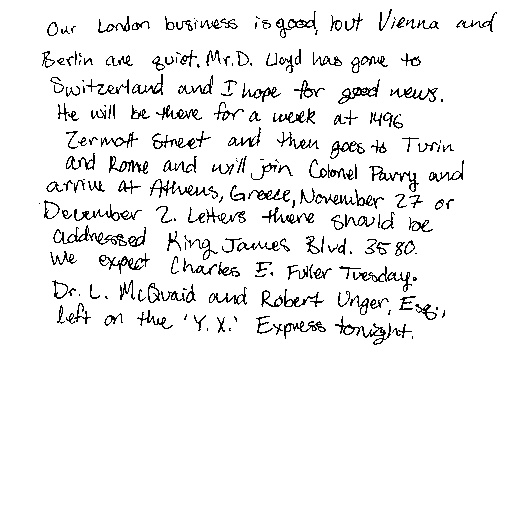 Our London business is good, but Vienna and
Berlin are quiet. Mr. D. Lloyd has gone to
Switzerland and I hope for good news.
He will be there for a week at 1496
Zermott Street and then goes to Turin
and Rome and will join Colonel Parry and
arrive at Athens, Greece, November 27 or
December 2. Letters there should be
addressed King James Blvd. 3580.
We expect Charles E. Fuller Tuesday.
Dr. L. McQuaid and Robert Unger, Esq.,
left on the 'Y. X.' Express tonight.